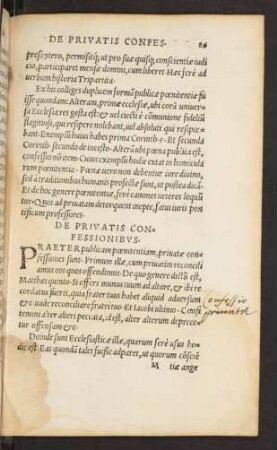 DE PRIVATIS CONFES.
presbytero, permisitq́; ut pro suæ quisq; conscientiæ iudi
cio, participaret mensæ domini, cum liberet. Hæc ferè ad
uerbum historia Tripartita.
Ex his colliges duplicem formã publicæ pœnitentiæ fu
isse quondam. Alteram, primæ ecclesiæ, ubi corã uniuer-
sa Ecclesia res gesta est: & uel eiecti è cõmunione fidelium
flagitiosi, qui resipere nolebant, uel absoluti qui resipis-
bant. Exemplũ huius habes primæ Corinth. 5. Et secundæ
Corinth. secundo de incesto. Altera ubi pœna publica est,
confessio nõ item. Cuius exemplũ hodie extat in homicida
rum pœnitentia. Pœna uero non debentur iure diuino,
sed à traditionibus humanis profectæ sunt, ut postea dicã.
Et de hoc genere pœnitentiæ, ferè canones ueteres loquũ
tur. Quos ad priuatam detorquent inepte, satui iuris pon
tificum professores.
DE PRIVATIS CON-
FESSIONIBVS.
PRAETER publicam pœnitentiam, priuatæ con-
fessiones sunt. Primum illæ, cum priuatim reconcili
amur eos quos offendimus. De quo genere dictũ est,
Matthæi quinto. Si offers munus tuum ad altare, & ibi re
cordatus fueris, quia frater tuus habet aliquid aduersum
te: uade reconciliare fratri tuo. Et Iacobi ultimo. Confi
temini alter alteri peccata, id est, alter alterum deprece
tur offensam &c.
Deinde sunt Ecclesiasticæ illæ, quarum ferè usus ho-
die est. Eas quondã tales fuisse adparet, ut quorum cõsciẽ
M tiæ ange
Confessio
priuata